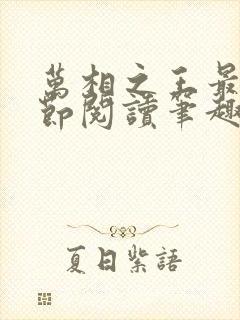 萬相之王最
節閱讀筆趣
夏日紫語